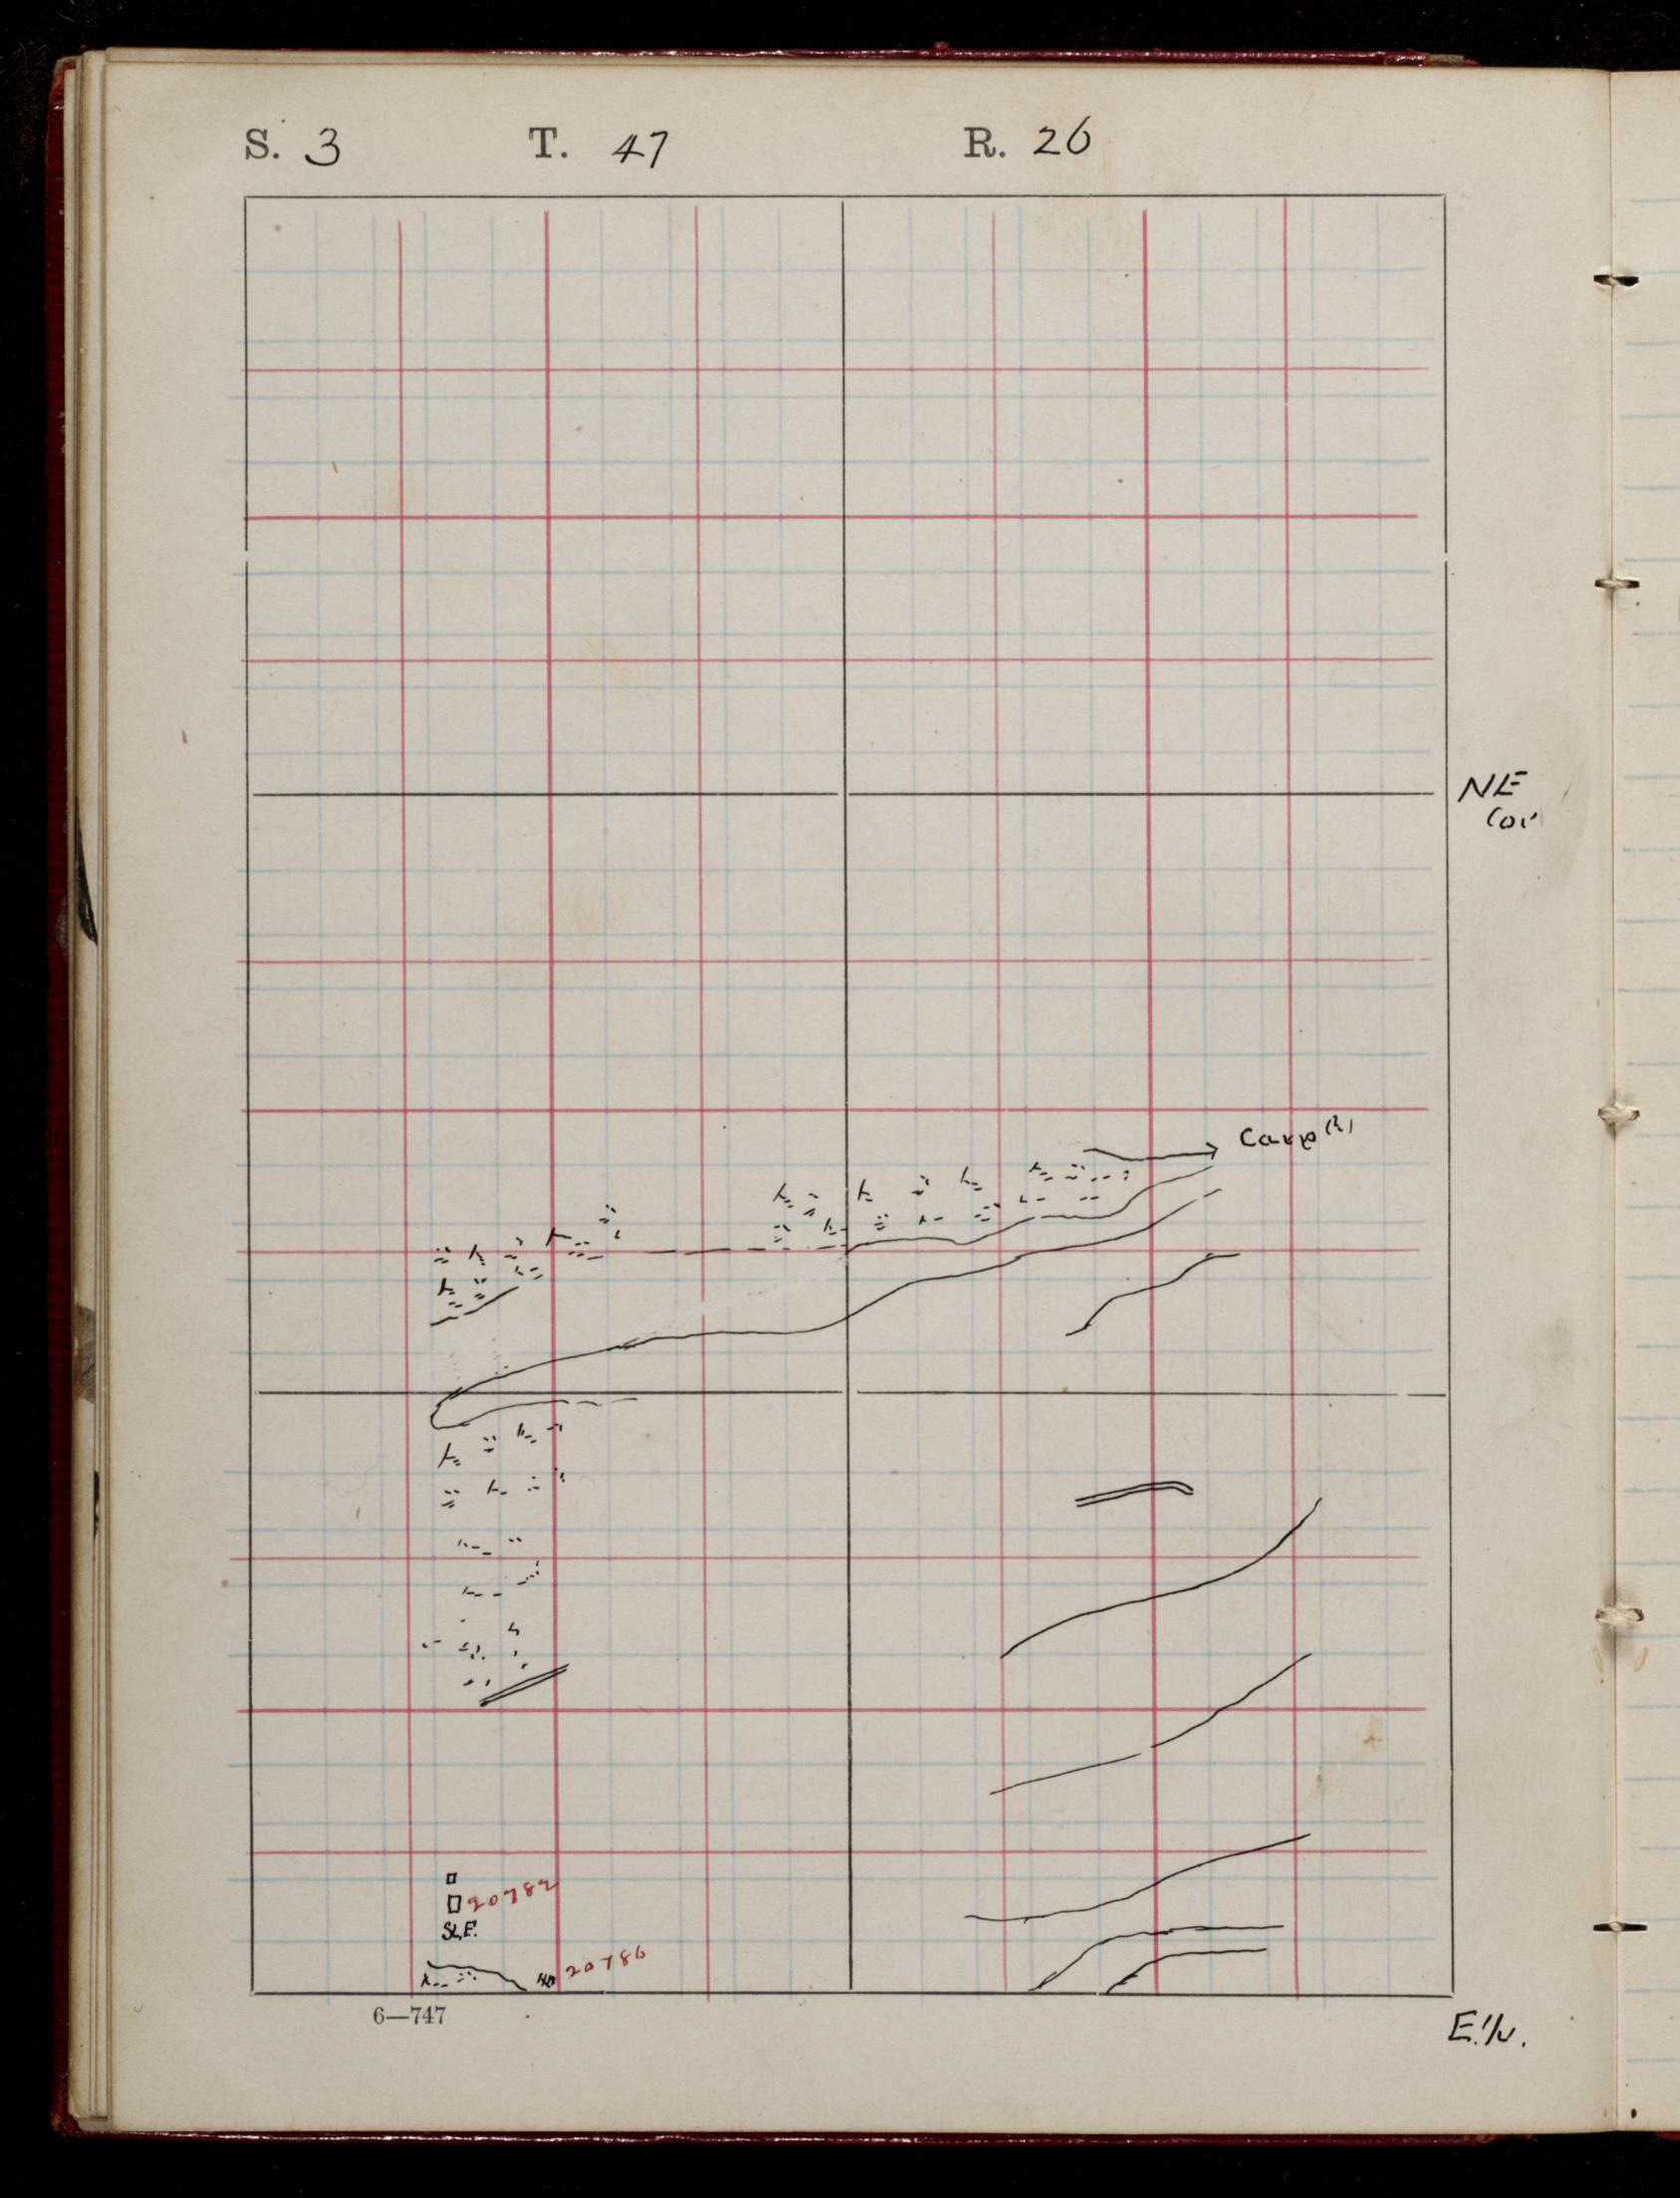 S. 3 T. 47 R. 26
NE
Cor
Carp (R)
20782
St. E.
20786
6—747
E 1/4.